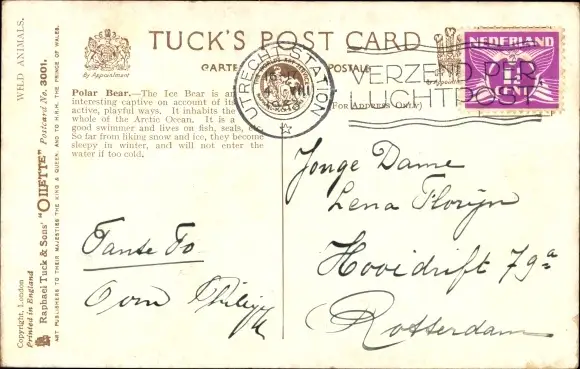 WILD ANIMALS.
Copyright, London
Printed in England
Raphael Tuck & Sons' "OILETTE" Postcard No. 3001.
ART PUBLISHERS TO THEIR MAJESTIES THE KING & QUEEN AND TO H.R.H. THE PRINCE OF WALES.
By Appointment
TUCK'S POST CARD
CARTE POSTALE
(For Address Only)
Polar Bear.—The Ice Bear is an
interesting captive on account of its
active, playful ways. It inhabits the
whole of the Arctic Ocean. It is a
good swimmer and lives on fish, seals, etc.
So far from liking snow and ice, they become
sleepy in winter, and will not enter the
water if too cold.
UTRECHT STATION
VIII
VERZEND PER
LUCHTPOST
NEDERLAND
CENT
Jonge Dame
Lena Florijn
Hooidrift 79a
Rotterdam
Tante To
Oom Philipp